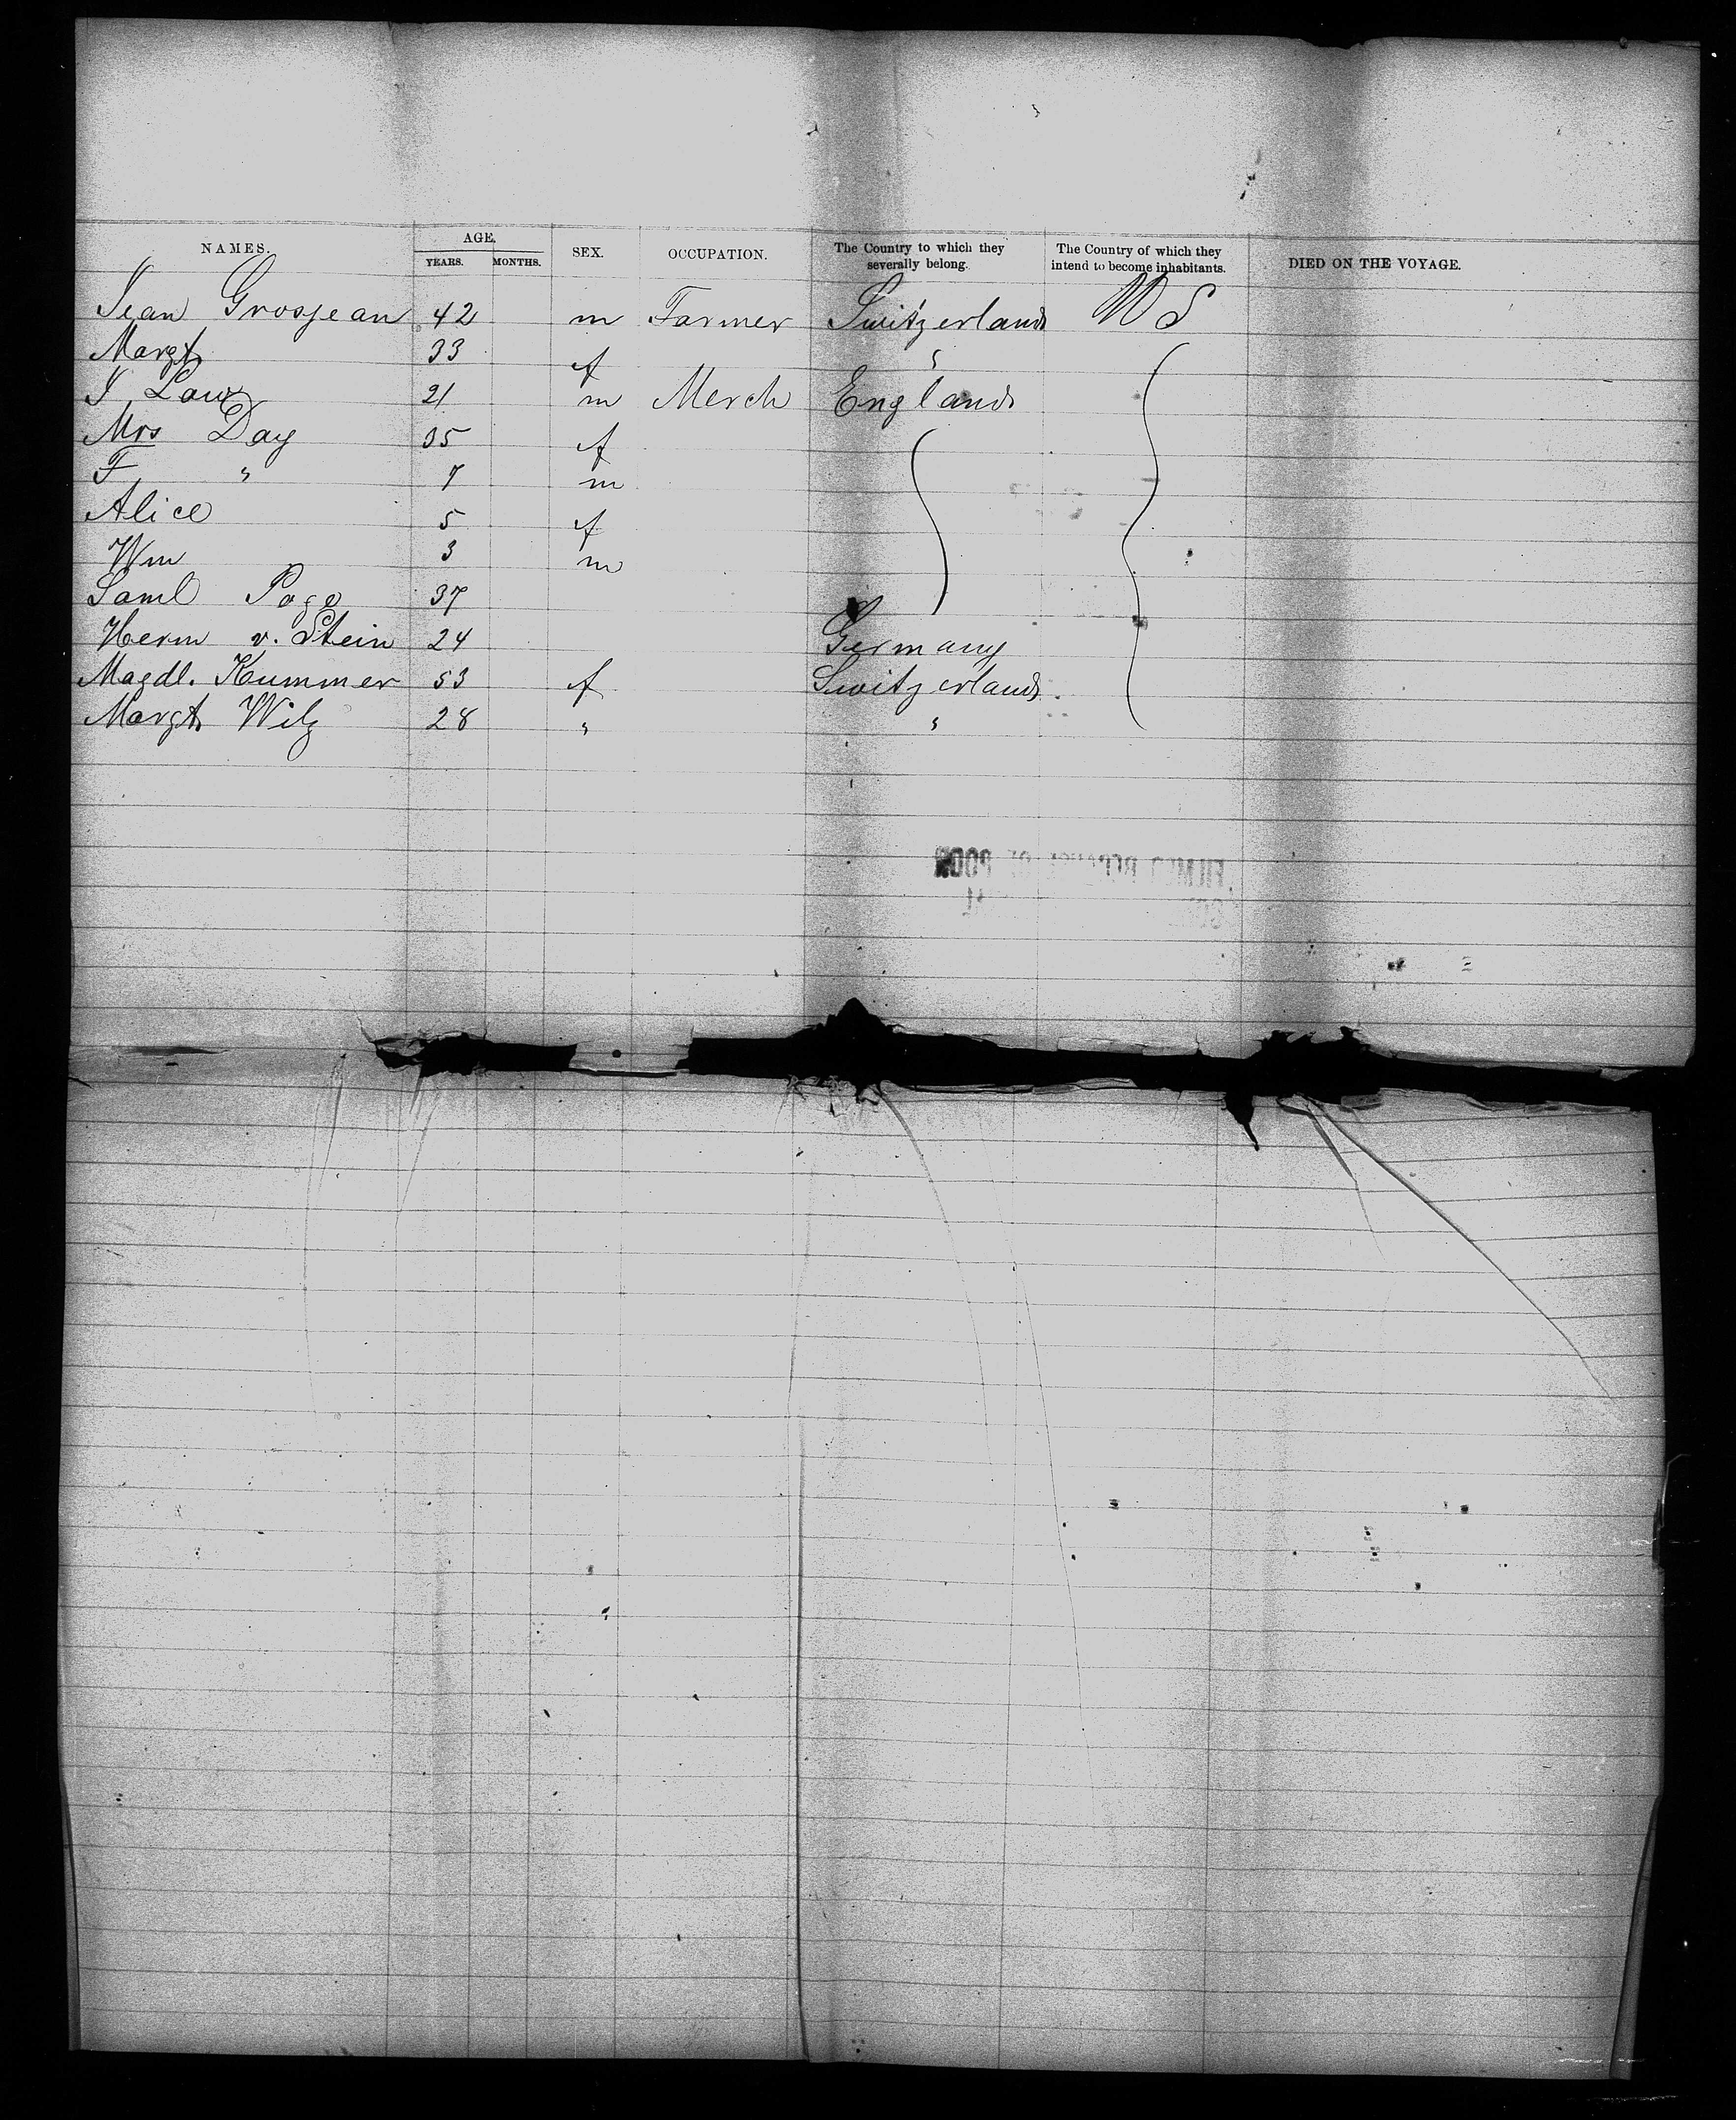 NAMES. AGE. YEARS. MONTHS. SEX. OCCUPATION. The Country to which they severally belong. The Country of which they intend to become inhabitants. DIED ON THE VOYAGE.
Jean Grosjean 42 m Farmer Switzerland US
Margt 33 f "
J Law 21 m Merch England
Mrs Day 35 f
F " 7 m
Alice 5 f
Wm 3 m
Saml Page 37
Herm v. Stein 24 Germany
Magdl. Kummer 53 f Switzerland
Margt Wilz 28 " "